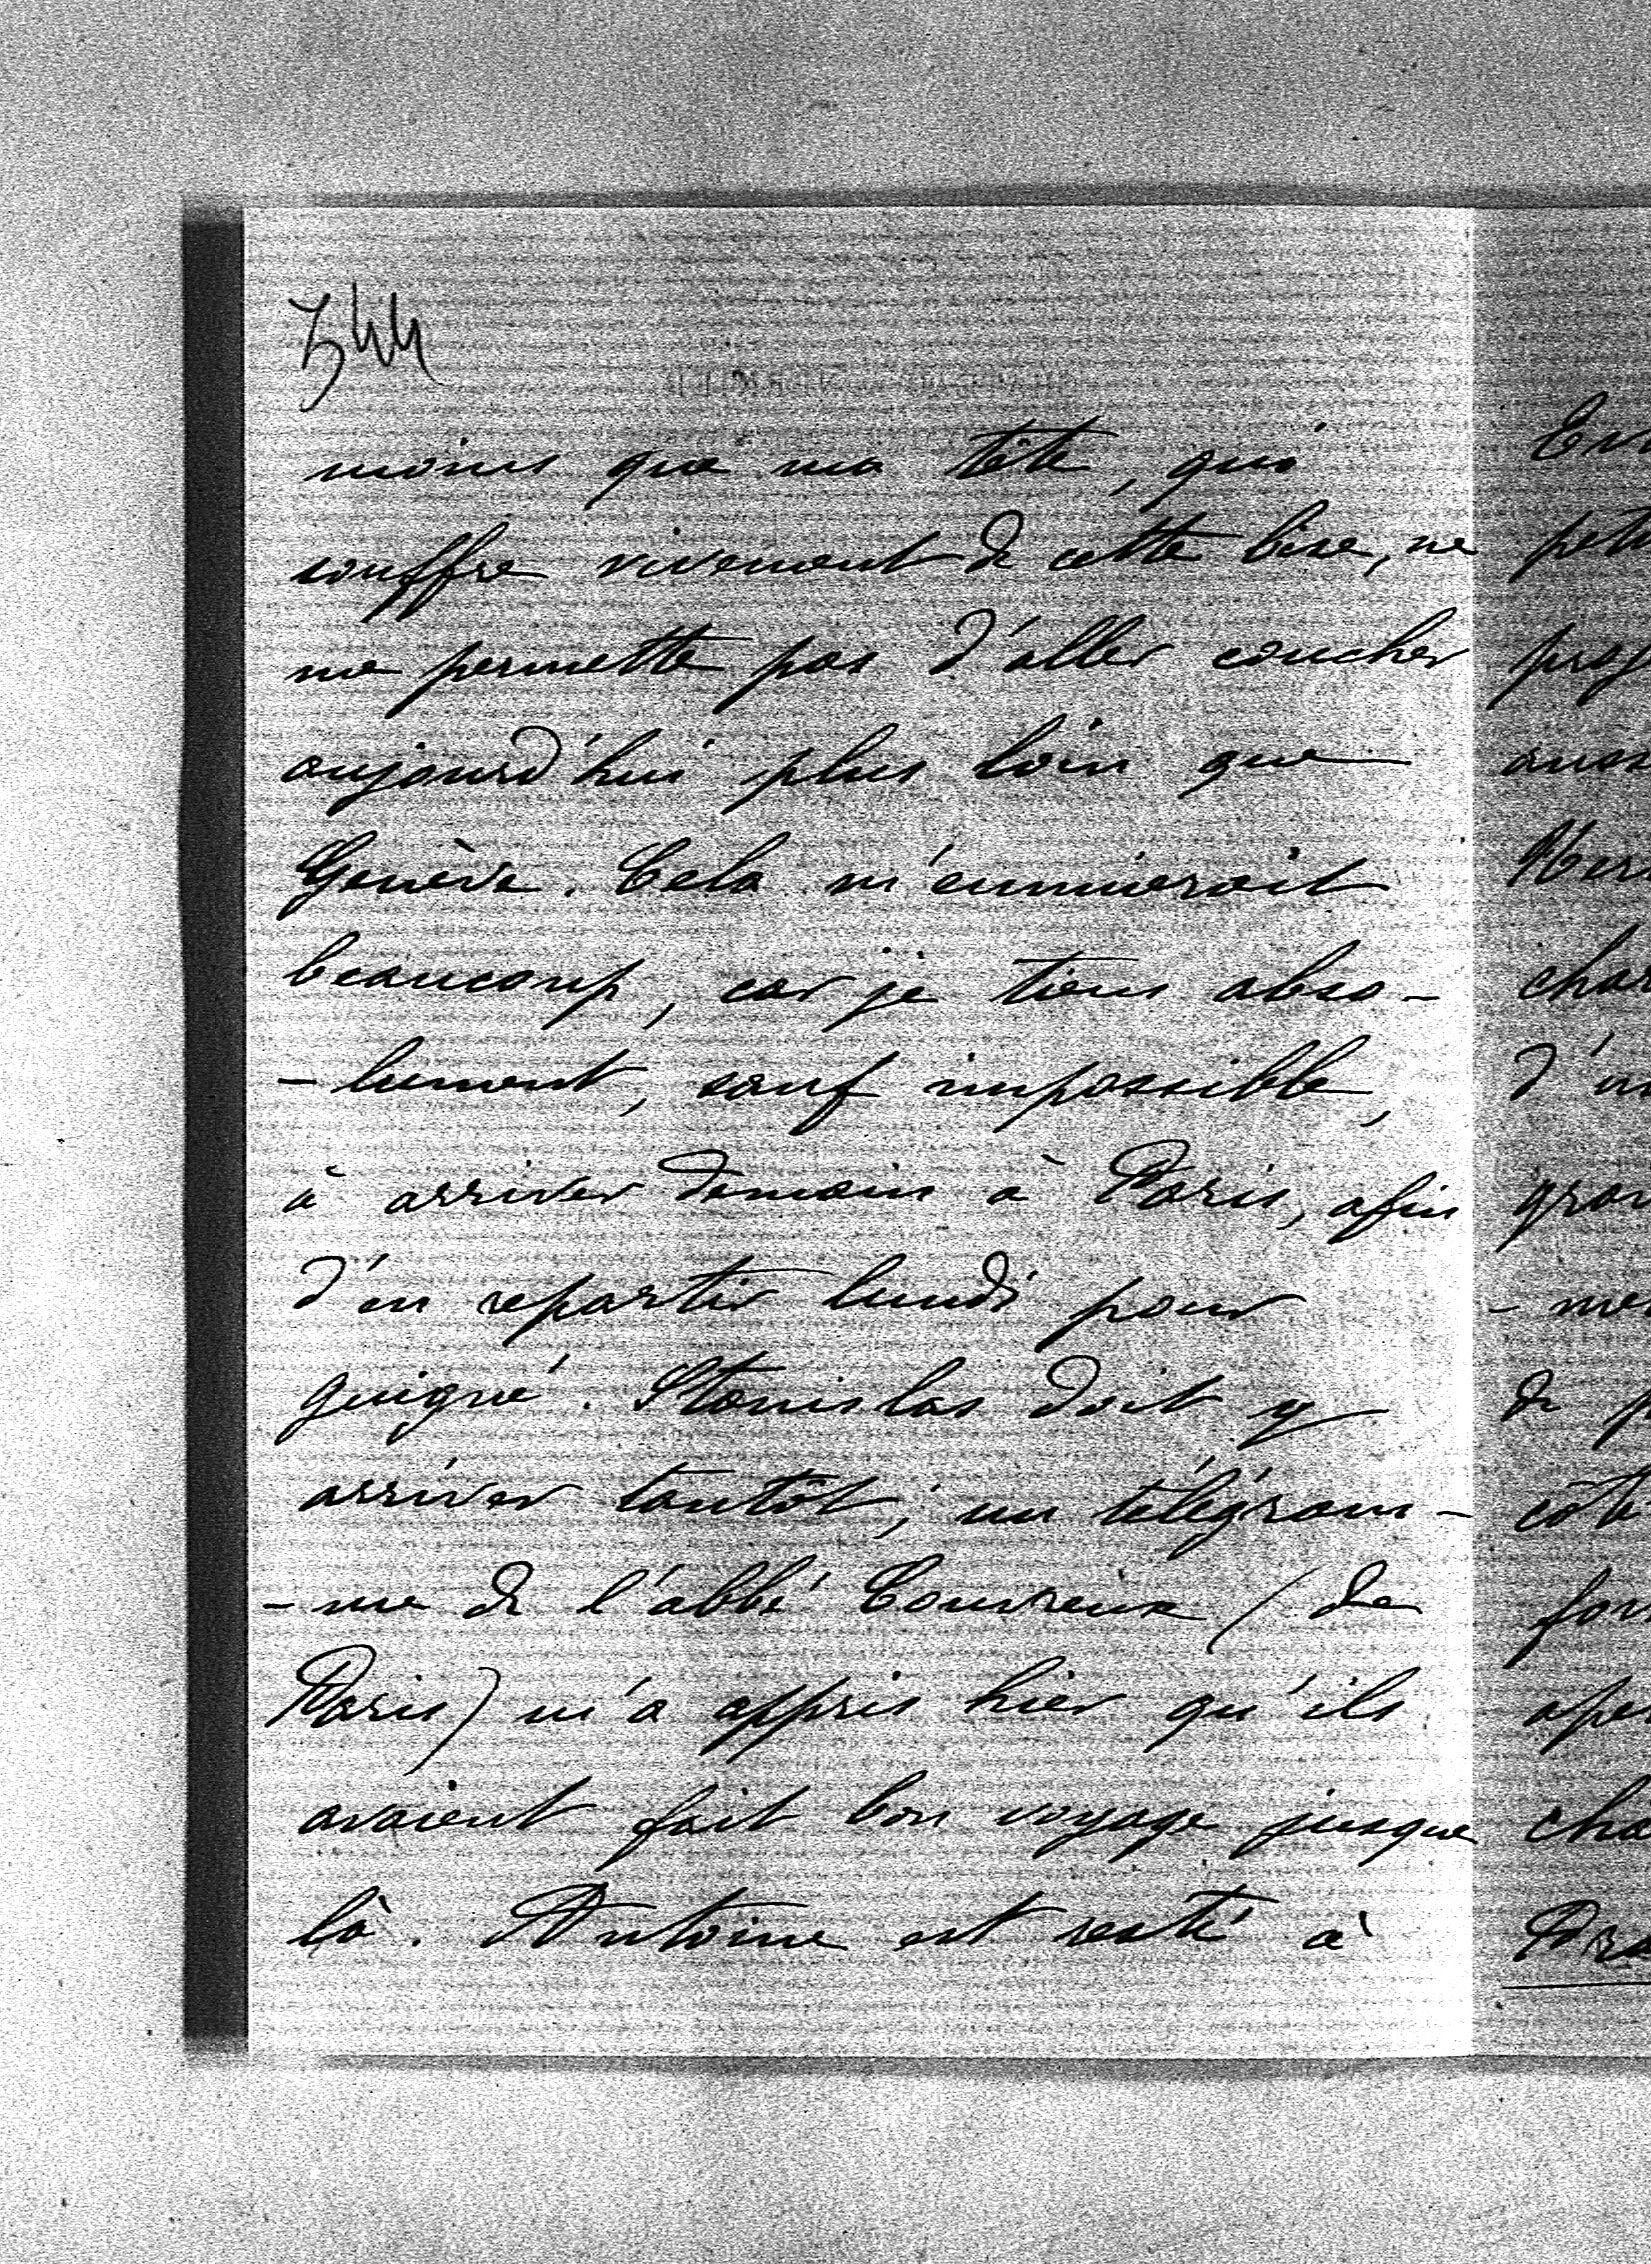 544
moins que ma tête, qui
souffre vivement de cette bise, ne
me permette pas d'aller coucher
aujourd'hui plus loin que
Genève. Cela m'ennuierait
beaucoup, car je tiens abso-
-lument, sauf impossible,
à arriver demain à Paris, afin
d'en repartir lundi pour
Guigné. Stanislas doit y
arriver tantôt; un télégram-
-me de l'abbé Couvreux (de
Paris) m'a appris hier qu'ils
avaient fait bon voyage jusque
là. Antoine est resté à